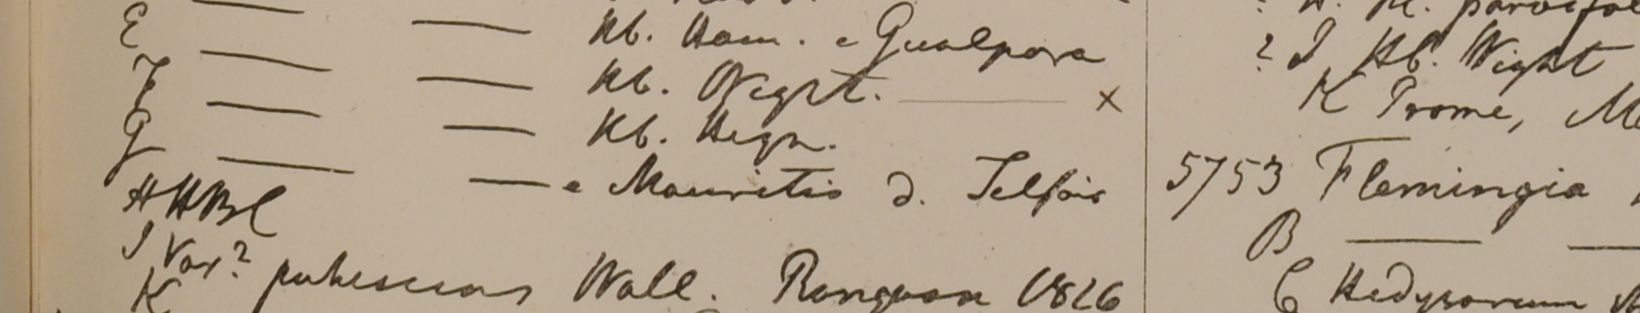 E — — Hb. Ham. e Gualpara
F — — Hb. Wight. — ×
G — — Hb. Heyn.
— — e Mauritio d. Telfair
H HBC
I Var? pubescens Wall. Rangoon 1826
K
? I Hb. Wight
K Prome,
5753 Flemingia
B — —
C Hedysarum